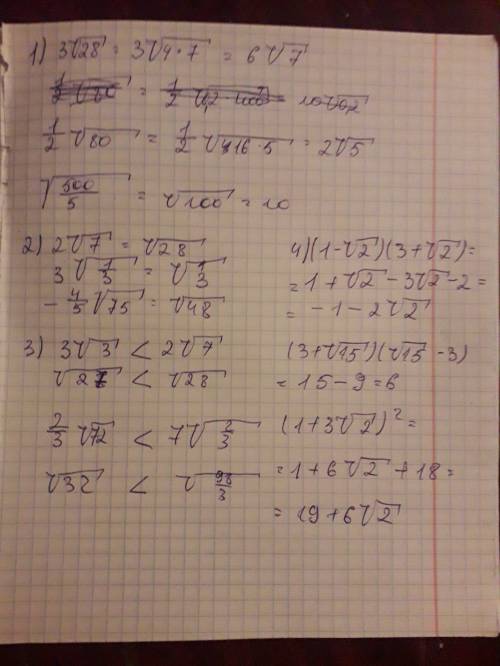 1) 3√28 = 3√4·7 = 6√7
1/2 √80 = 1/2 √16·5 = 2√5
√500/5 = √100 = 10
2) 2√7 = √28
3√1/3 = √3
- 4/5 √75 = √48
3) 3√3 < 2√7
√27 < √28
2/3 √72 < 7√2/3
√32 < √98/3
4) (1-√2)(3+√2) =
= 1+√2-3√2-2 =
= -1-2√2
(3+√15)(√15-3)
= 15-9=6
(1+3√2)² =
= 1+6√2+18 =
= 19+6√2